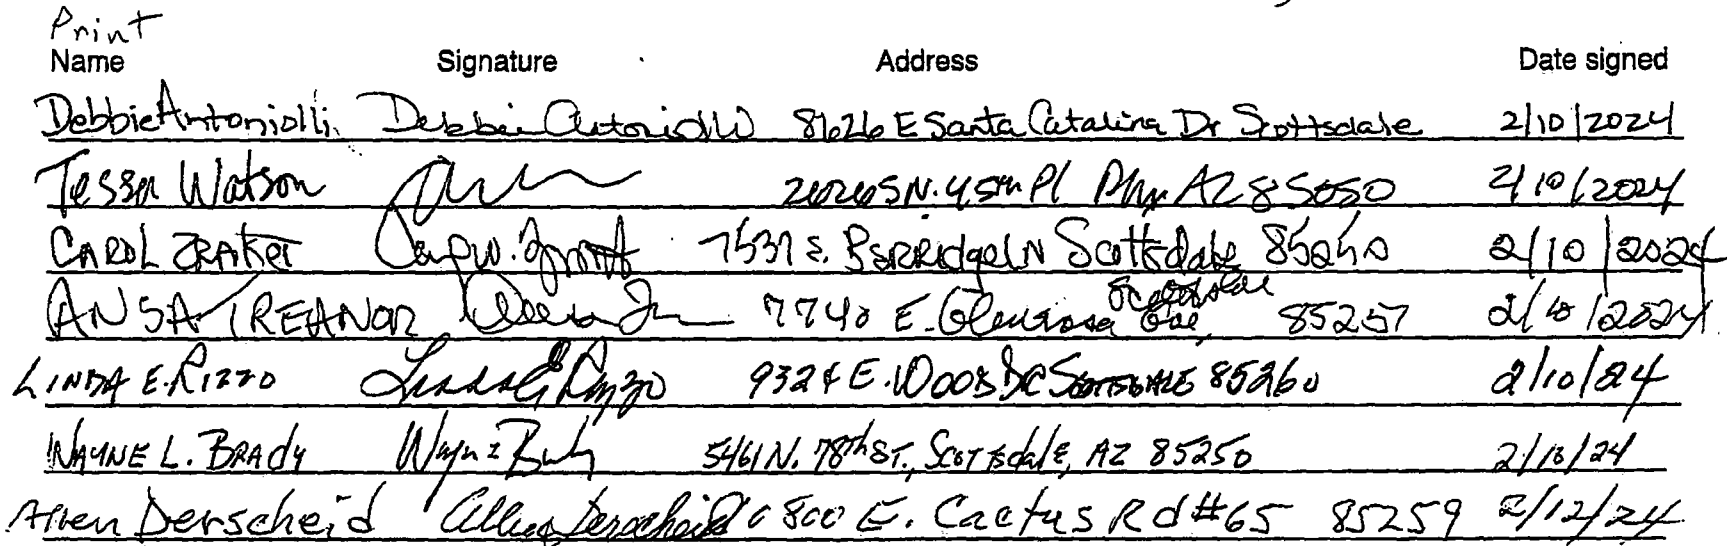 Print
Name Signature Address Date signed
Debbie Antoniolli Debbie Antoniolli 8626 E Santa Catalina Dr Scottsdale 2/10/2024
Tessa Watson 26265 N. 45th Pl Phx AZ 85050 2/10/2024
CAROL ZRAKET 7537 E. PARRidge LN Scottsdale 85250 2/10/2024
ANSA TREANOR 7740 E. Glenrosa Ave, Scottsdale 85257 2/10/2024
LINDA E. RIZZO Linda E Rizzo 9324 E. WOOD DR SCOTTSDALE 85260 2/10/24
WAYNE L. BRADY Wayne Brady 5461 N. 78th ST., SCOTTSdale, AZ 85250 2/10/24
Allen Derscheid Allen Derscheid 800 E. Cactus Rd #65 85259 2/12/24